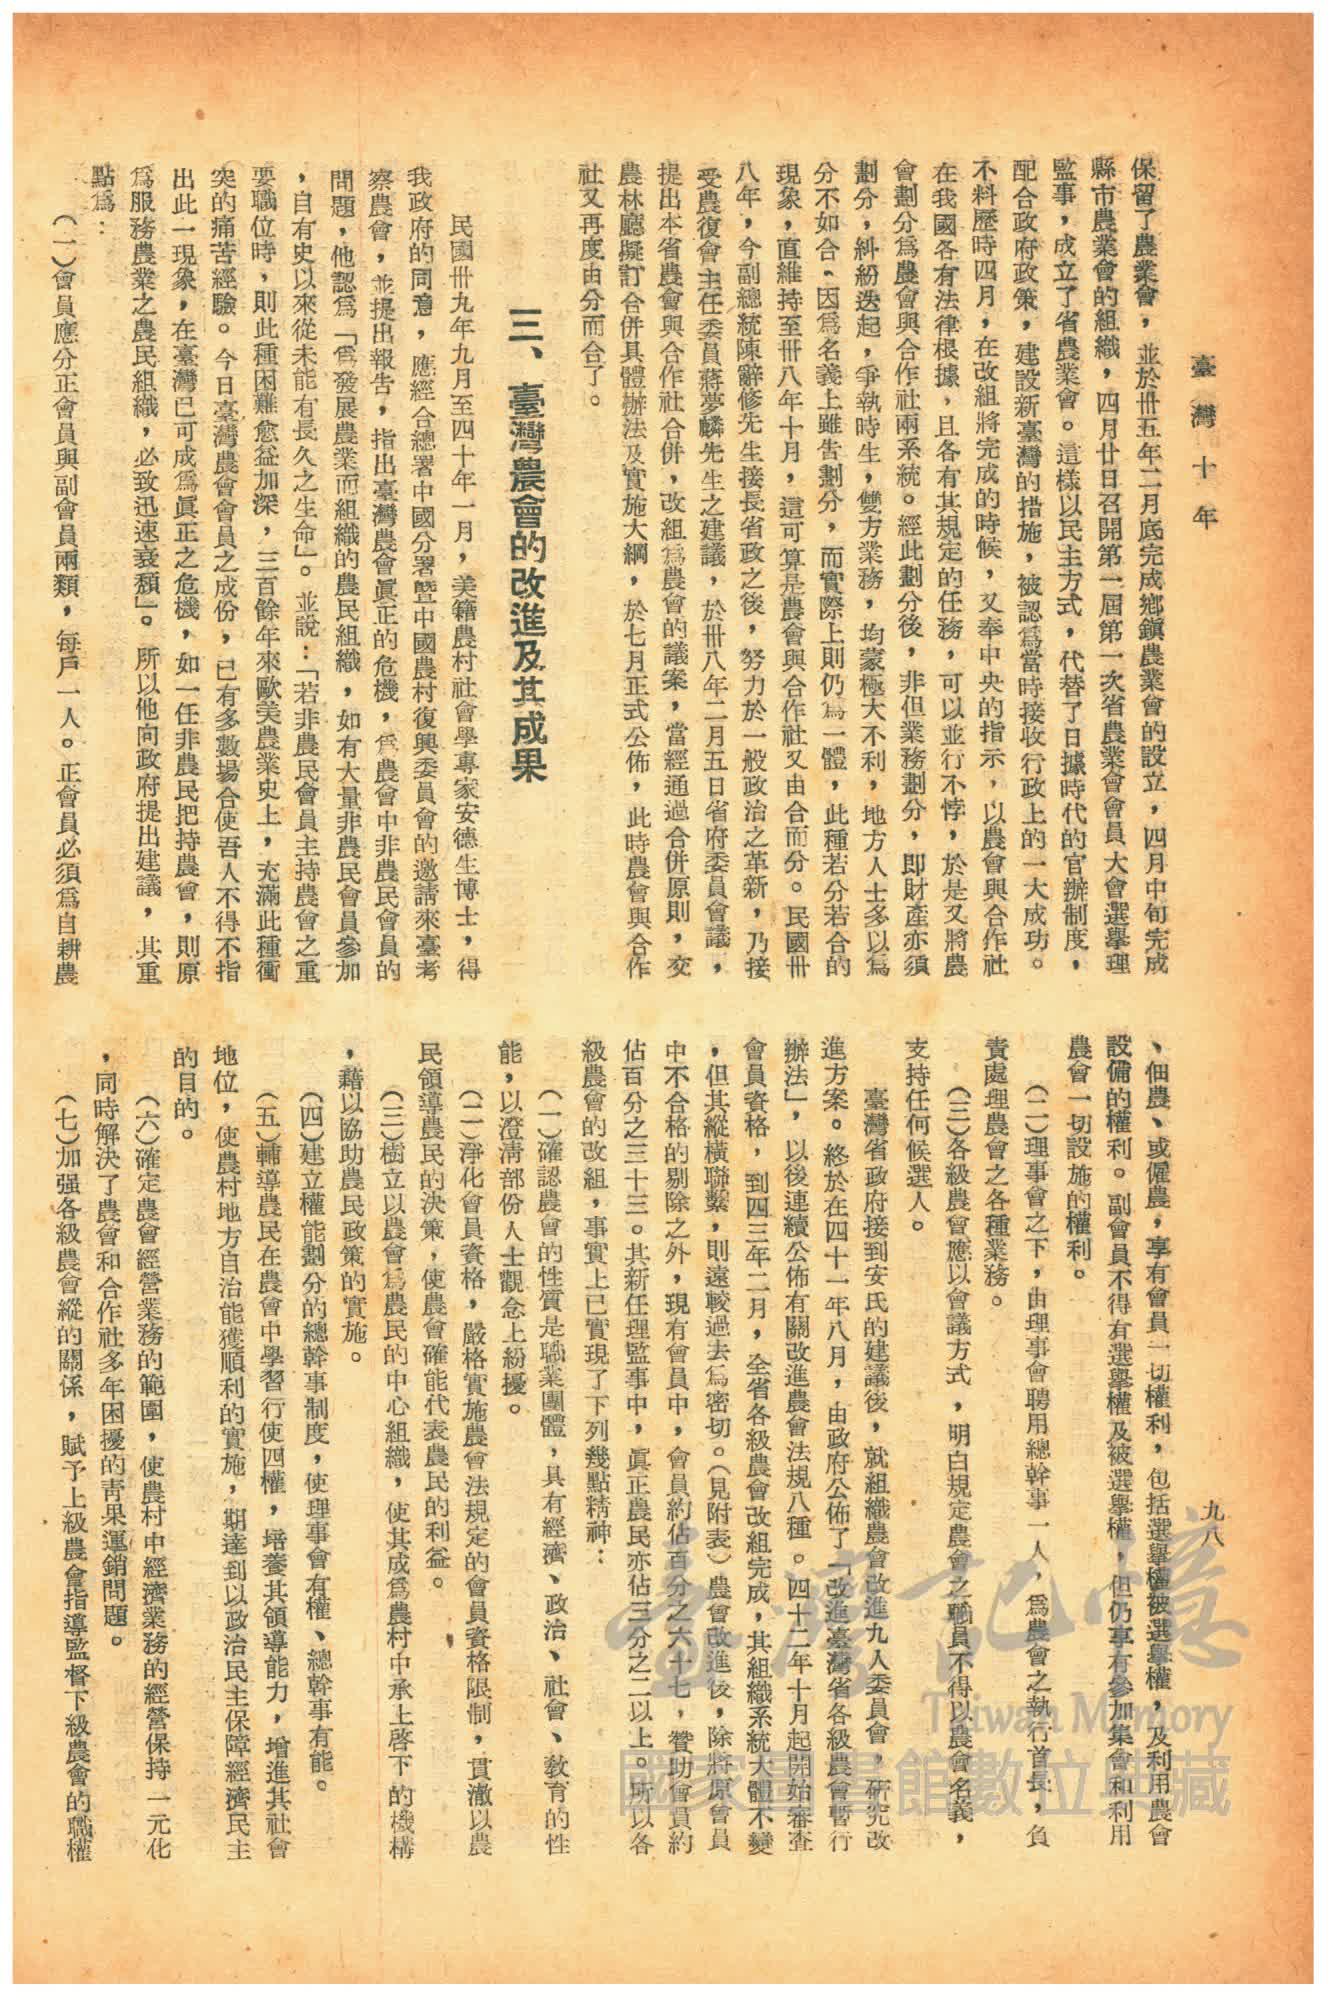 臺灣十年
九八
保留了農業會，並於卅五年二月底完成鄉鎮農業會的設立，四月中旬完成
縣市農業會的組織，四月廿日召開第一屆第一次省農業會會員大會選舉理
監事，成立了省農業會。這樣以民主方式，代替了日據時代的官辦制度，
配合政府政策，建設新臺灣的措施，被認爲當時接收行政上的一大成功。
不料歷時四月，在改組將完成的時候，又奉中央的指示，以農會與合作社
在我國各有法律根據，且各有其規定的任務，可以並行不悖，於是又將農
會劃分爲農會與合作社兩系統。經此劃分後，非但業務劃分，即財產亦須
劃分，糾紛迭起，爭執時生，雙方業務，均蒙極大不利，地方人士多以爲
分不如合、因爲名義上雖告劃分，而實際上則仍爲一體，此種若分若合的
現象，直維持至卅八年十月，這可算是農會與合作社又由合而分。民國卅
八年，今副總統陳辭修先生接長省政之後，努力於一般政治之革新，乃接
受農復會主任委員蔣夢麟先生之建議，於卅八年二月五日省府委員會議，
提出本省農會與合作社合併，改組爲農會的議案，當經通過合併原則，交
農林廳擬訂合併具體辦法及實施大綱，於七月正式公佈，此時農會與合作
社又再度由分而合了。
三、臺灣農會的改進及其成果
民國卅九年九月至四十年一月，美籍農村社會學專家安德生博士，得
我政府的同意，應經合總署中國分署暨中國農村復興委員會的邀請來臺考
察農會，並提出報告，指出臺灣農會眞正的危機，爲農會中非農民會員的
問題，他認爲「爲發展農業而組織的農民組織，如有大量非農民會員參加
，自有史以來從未能有長久之生命」。並說：「若非農民會員主持農會之重
要職位時，則此種困難愈益加深，三百餘年來歐美農業史上，充滿此種衝
突的痛苦經驗。今日臺灣農會會員之成份，已有多數場合使吾人不得不指
出此一現象，在臺灣已可成爲眞正之危機，如一任非農民把持農會，則原
爲服務農業之農民組織，必致迅速衰頽」。所以他向政府提出建議，其重
點爲：
（一）會員應分正會員與副會員兩類，每戶一人。正會員必須爲自耕農
、佃農、或僱農，享有會員一切權利，包括選舉權被選舉權，及利用農會
設備的權利。副會員不得有選舉權及被選舉權，但仍享有參加集會和利用
農會一切設施的權利。
（二）理事會之下，由理事會聘用總幹事一人，爲農會之執行首長，負
責處理農會之各種業務。
（三）各級農會應以會議方式，明白規定農會之職員不得以農會名義，
支持任何候選人。
臺灣省政府接到安氏的建議後，就組織農會改進九人委員會，研究改
進方案。終於在四十一年八月，由政府公佈了「改進臺灣省各級農會暫行
辦法」，以後連續公佈有關改進農會法規八種。四十二年十月起開始審查
會員資格，到四三年二月，全省各級農會改組完成，其組織系統大體不變
，但其縱橫聯繫，則遠較過去爲密切。（見附表）農會改進後，除將原會員
中不合格的剔除之外，現有會員中，會員約佔百分之六十七，贊助會員約
佔百分之三十三。其新任理監事中，眞正農民亦佔三分之二以上。所以各
級農會的改組，事實上已實現了下列幾點精神：
（一）確認農會的性質是職業團體，具有經濟、政治、社會、敎育的性
能，以澄淸部份人士觀念上紛擾。
（二）淨化會員資格，嚴格實施農會法規定的會員資格限制，貫澈以農
民領導農民的決策，使農會確能代表農民的利益。
（三）樹立以農會爲農民的中心組織，使其成爲農村中承上啓下的機構
，藉以協助農民政策的實施。
（四）建立權能劃分的總幹事制度，使理事會有權、總幹事有能。
（五）輔導農民在農會中學習行使四權，培養其領導能力，增進其社會
地位，使農村地方自治能獲順利的實施，期達到以政治民主保障經濟民主
的目的。
（六）確定農會經營業務的範圍，使農村中經濟業務的經營保持一元化
，同時解決了農會和合作社多年困擾的靑果運銷問題。
（七）加强各級農會縱的關係，賦予上級農會指導監督下級農會的職權
臺灣記憶
Taiwan Memory
國家圖書館數位典藏